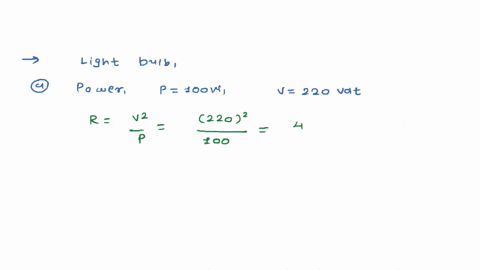 → Light bulb,
(a) Power, P = 100W, V = 220 vat
R = V2/P = (220)²/100 = 4